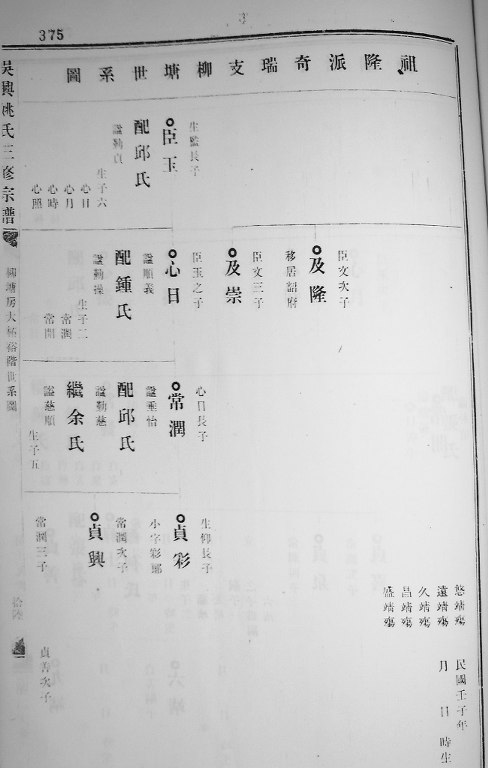 375
祖隆派奇瑞支柳塘世系圖
生監長子
臣玉
配邱氏
諡勤貞
生子六
心日
心月
心時
心照
臣文次子
及隆
移居韶府
臣文三子
及崇
臣玉之子
心日
諡順義
配鍾氏
諡勤操
生子二
常潤
常開
心日長子
常潤
諡垂怡
配邱氏
諡勤慈
繼余氏
諡慈順
生子五
悠靖殤
遠靖殤
久靖殤
昌靖殤
盛靖殤
民國壬子年
月日時生
生仰長子
貞彩
小字彩
常潤次子
貞興
常潤三子
貞吾次子
吳興姚氏三修宗譜
柳塘房大祐裕階世系圖